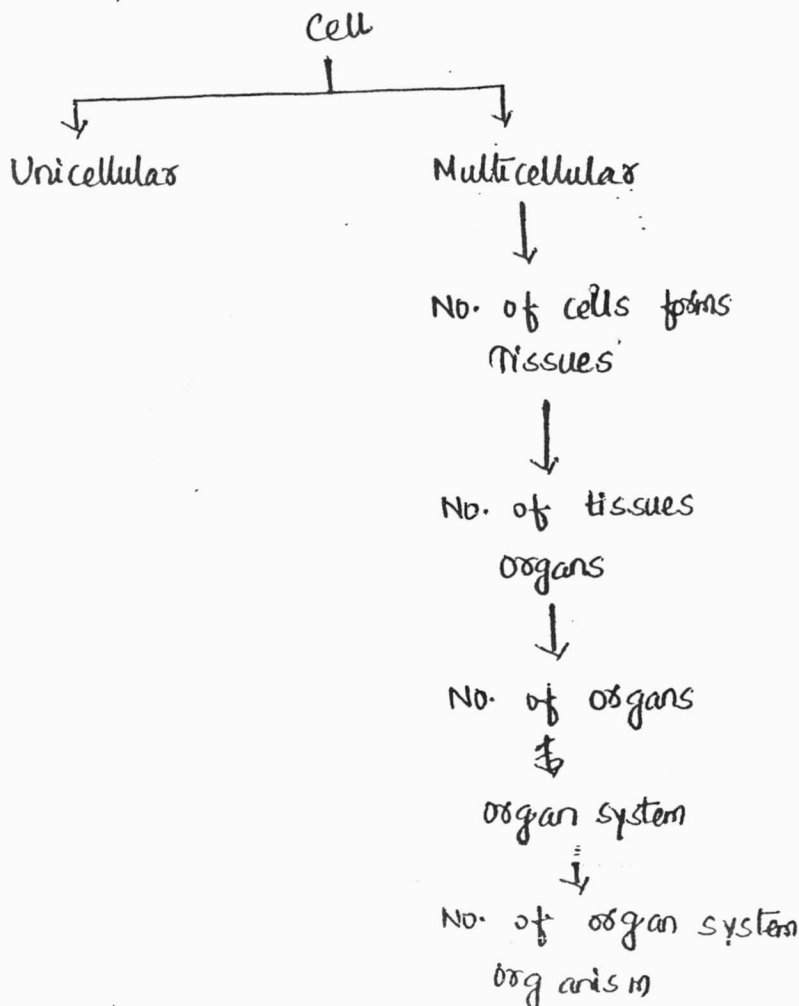 Cell
Unicellular Multicellular
No. of cells forms
Tissues
No. of tissues
organs
No. of organs
organ system
No. of organ system
organism